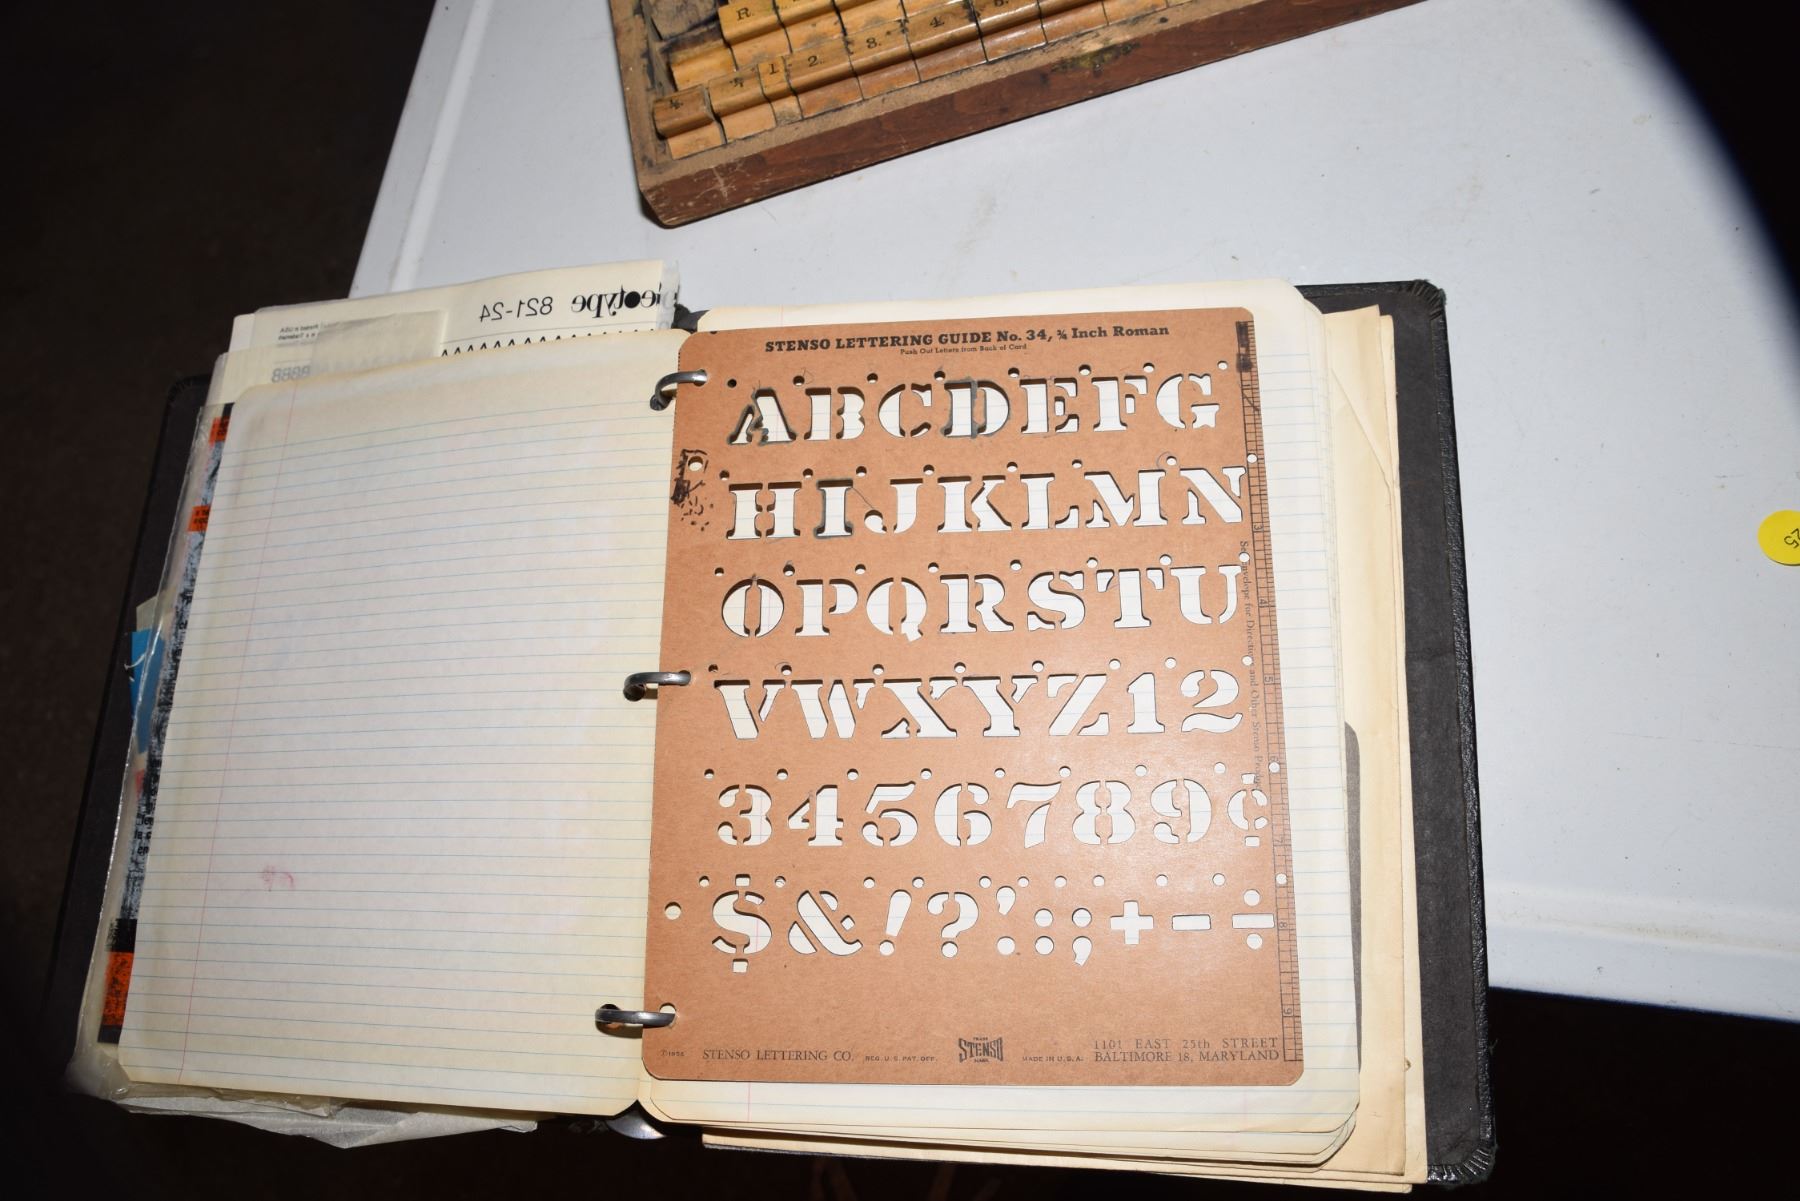 R.
½ ¼ 1 2. 3. 4. 5.
821-24
8888
STENSO LETTERING GUIDE No. 34, ¾ Inch Roman
Push Out Letters from Back of Card
ABCDEFG
HIJKLMN
OPQRSTU
VWXYZ12
3456789¢
$&!?':;+-÷
3
4
5
7
8
9
See Envelope for Directions and Other Stenso Products
STENSO LETTERING CO. REG. U.S. PAT. OFF.
TRADE
STENSO
MARK
MADE IN U.S.A.
1101 EAST 25th STREET
BALTIMORE 18, MARYLAND
25